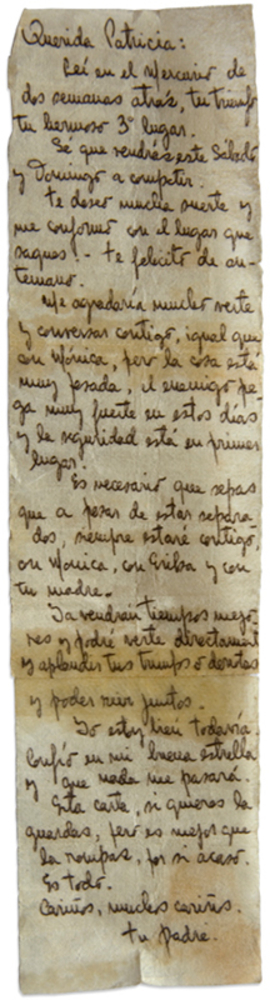 Querida Patricia:
Leí en el Mercurio de
dos semanas atrás, tu triunfo
tu hermoso 3° lugar.
Se que vendrás este Sábado
y Domingo a competir.
Te deseo mucha suerte y
me conformo con el lugar que
saques! - te felicito de an-
temano.
Me agradaría mucho verte
y conversar contigo, igual que
con Mónica, pero la cosa está
muy pesada, el enemigo pe-
ga muy fuerte en estos días
y la seguridad está en primer
lugar.
Es necesario que sepas
que a pesar de estar separa-
dos, siempre estaré contigo,
con Mónica, con Erika y con
tu madre.
Ya vendrán tiempos mejo-
res y podré verte directament
y aplaudir tus triunfos o derrotas
y poder reir juntos.
Yo estoy bien todavía.
Confío en mi buena estrella
y que nada me pasará.
Esta carta, si quieres la
guardas, pero es mejor que
la rompas, por si acaso.
Es todo.
Cariños, muchos cariños.
tu padre.